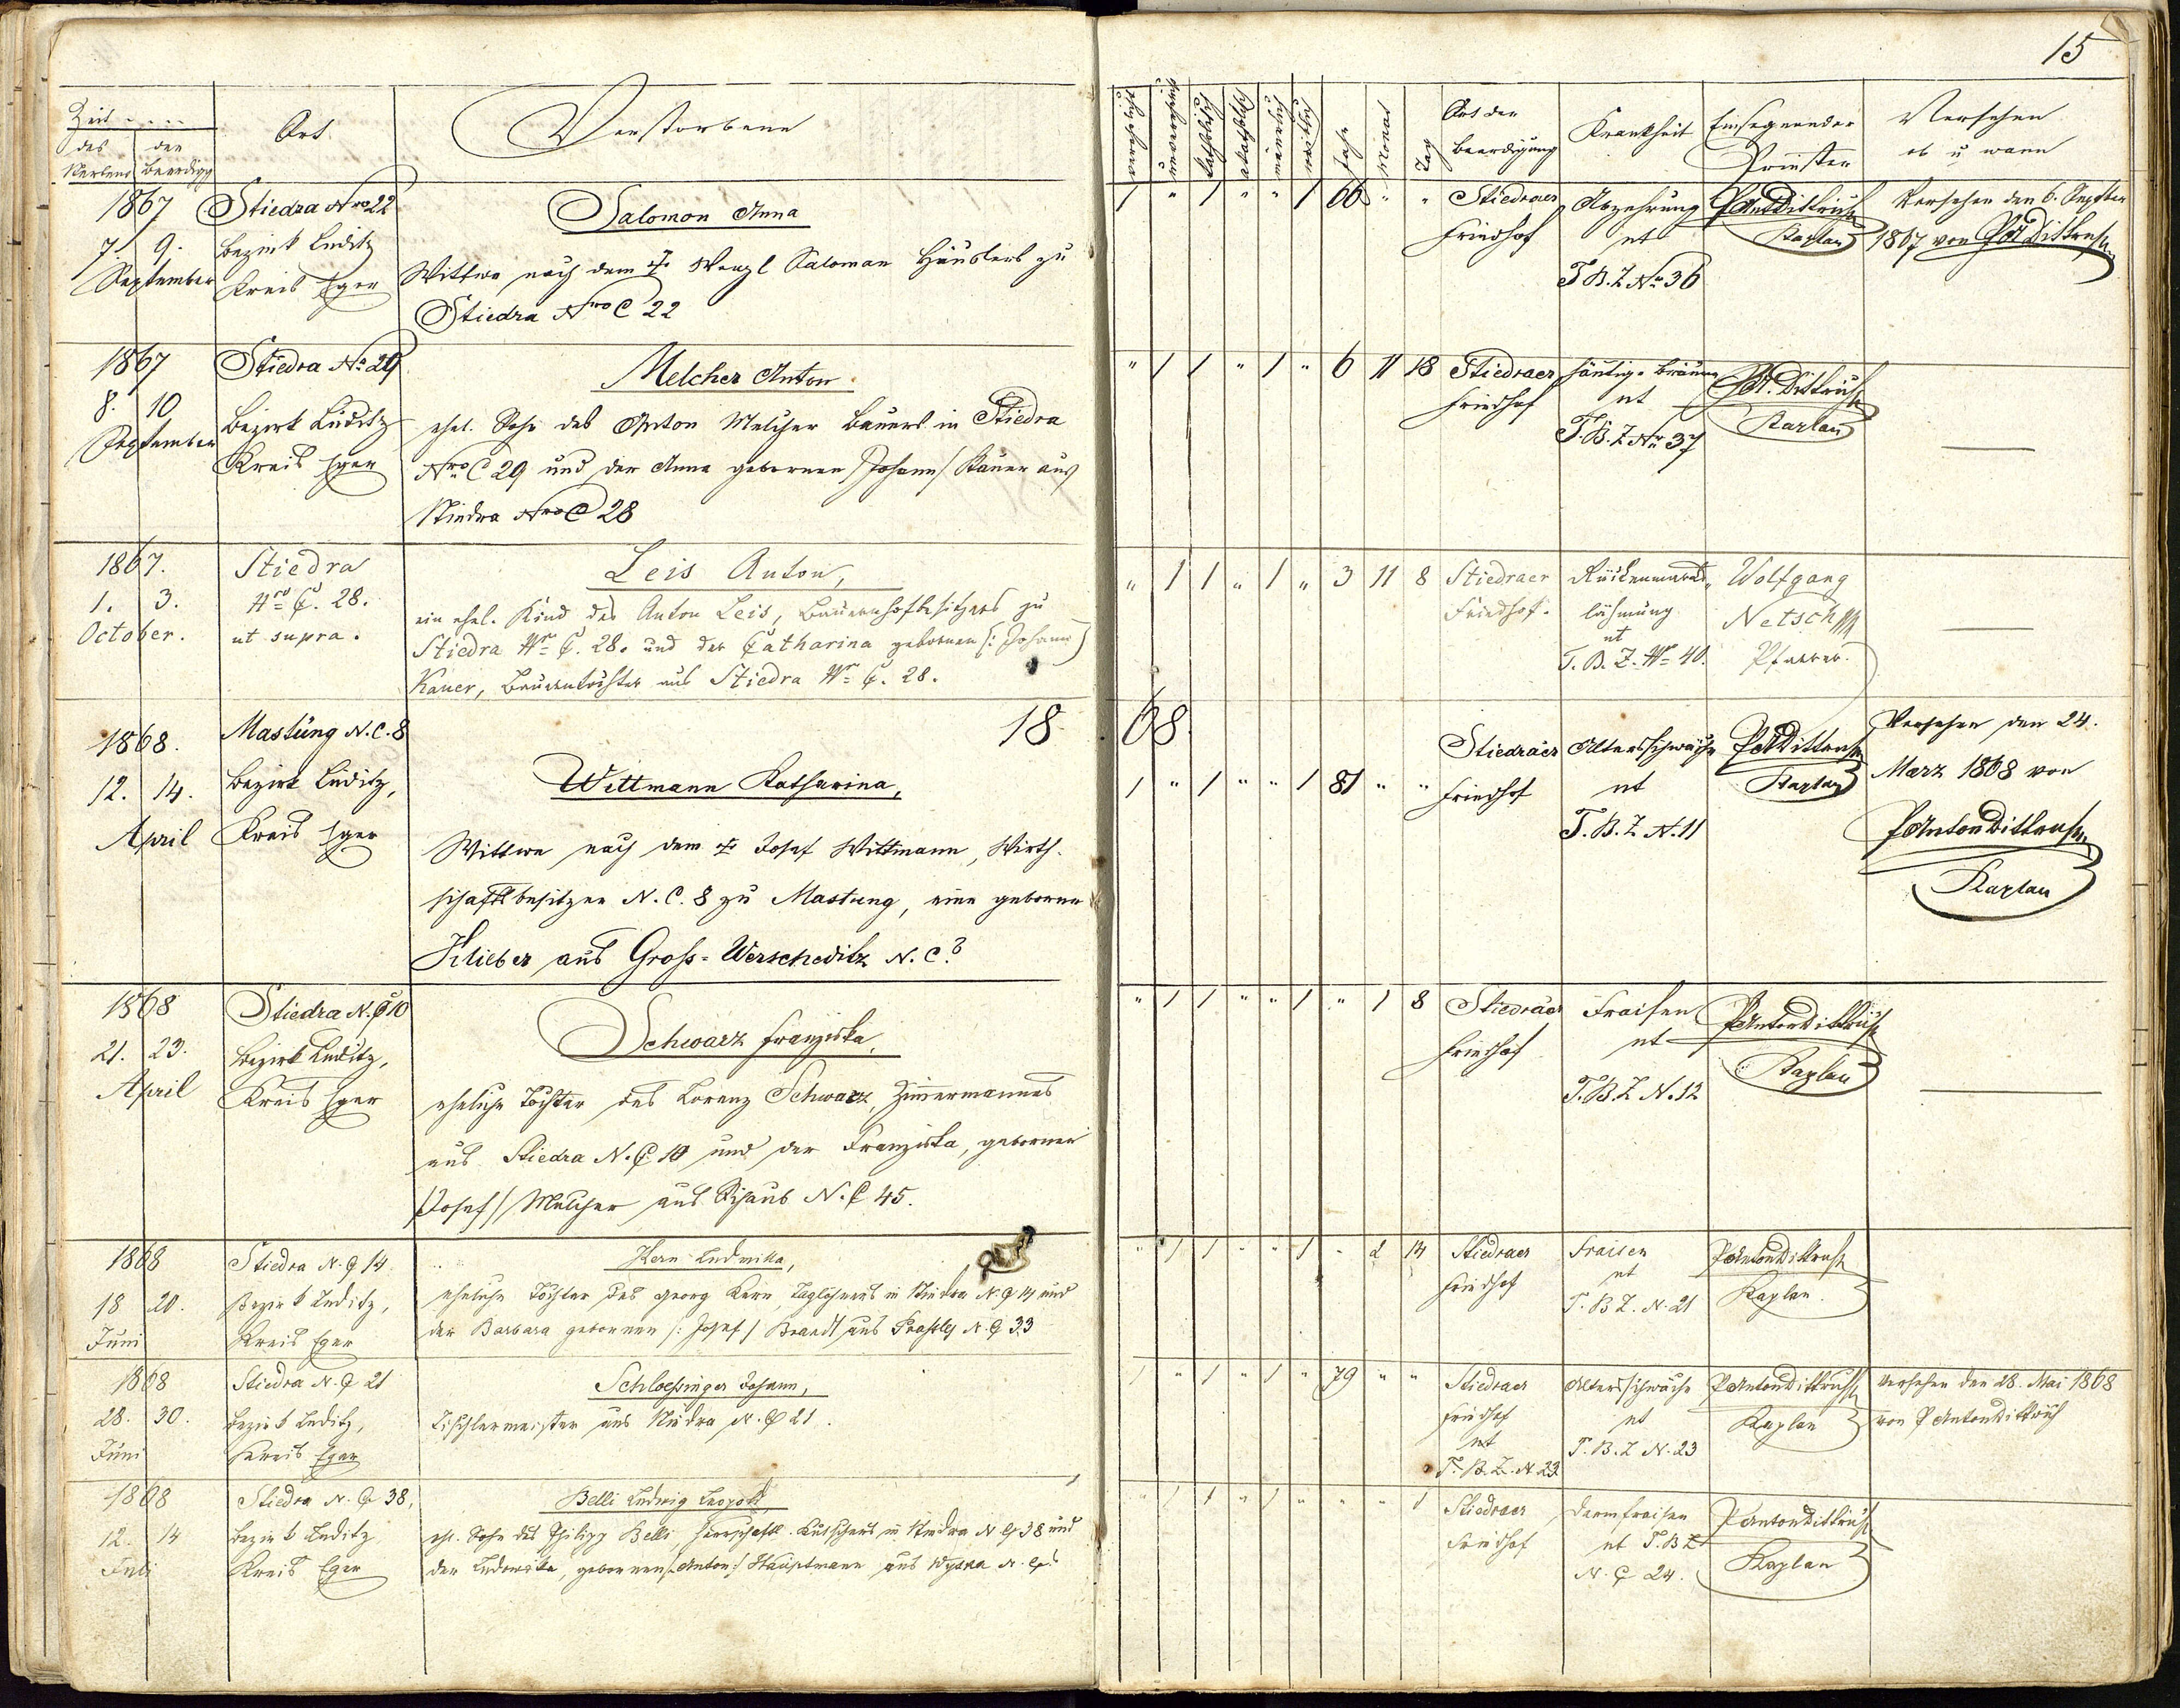 15
Zeit
des
der
Sterbens
Beerdigg
Ort
Verstorbene
verehelicht
unverehelicht
katholisch
akatholisch
mänlich
weiblich
Jahr
Monat
Tag
Ort der
Beerdigung
Krankheit
Einsegnender
Priester
Versehen
ob u wann
1867
7. 9.
September
Stiedra Nro 22
Bezirk Luditz
Kreis Eger
Salomon Anna
Wittwe nach dem † Wenzl Salomon Häuslers zu
Stiedra Nro C 22
1 " 1 " " 1 66 " "
Stiedraer
Friedhof
Abzehrung
ut
T.B.Z Nr 36
P Ant Dittrich
Kaplan
Versehen den 6. September
1867 von P A Dittrich
1867
8. 10
September
Stiedra Nr 29
Bezirk Luditz
Kreis Eger
Melcher Anton
ehel. Sohn des Anton Melcher Bauers in Stiedra
Nro C 29 und der Anna gebornen /Johann/ Kauer aus
Stiedra Nro C 28
" 1 1 " 1 " 6 11 18
Stiedraer
Friedhof
häutige Bräune
ut
T.B.Z Nr 37
P A. Dittrich
Kaplan
1867.
1. 3.
October.
Stiedra
Nro C. 28.
ut supra.
Leis Anton,
ein ehel. Kind des Anton Leis, Bauernhofbesitzers zu
Stiedra Nr C. 28. und der Catharina gebornen (: Johann)
Kauer, Bauerntochter aus Stiedra Nr C. 28.
" 1 1 " 1 " 3 11 8
Stiedraer
Friedhof.
Rückenmarks
lähmung
ut
T.B.Z. Nr 40.
Wolfgang
Netsch
Pfarrer.
1868
1868.
12. 14.
April
Mastung N.C. 8
Bezirk Luditz,
Kreis Eger
Wittmann Katharina,
Wittwe nach dem † Josef Wittmann, Wirth-
schaftsbesitzer N.C. 8 zu Mastung, eine geborne
Klieber aus Gross-Werscheditz N.C. ?
1 " 1 " " 1 81 " "
Stiedraer
Friedhof
Altersschwäche
ut
T.B.Z N. 11
P A Dittrich
Kaplan
Versehen den 24.
März 1868 von
P Anton Dittrich
Kaplan
1868
21. 23.
April
Stiedra N. C 10
Bezirk Luditz,
Kreis Eger
Schwarz Franziska,
eheliche Tochter des Lorenz Schwarz, Zimmermannes
aus Stiedra N. C 10 und der Franziska, gebornen
/Josef/ Melcher aus N. C 45.
" 1 1 " " 1 " 1 8
Stiedraer
Friedhof
Fraisen
ut
T.B.Z N. 12
P Anton Dittrich
Kaplan
1868
18 20.
Juni
Stiedra N. C 14
Bezirk Luditz,
Kreis Eger
Kern Ludmilla,
eheliche Tochter des Georg Kern, Taglöhners in Stiedra N. C 14 und
der Barbara gebornen /: Josef / Brandl aus N. C 33
" 1 1 " " 1 " 2 14
Stiedraer
Friedhof
Fraisen
ut
T. B Z. N. 21
P Anton Dittrich
Kaplan.
1868
28. 30.
Juni
Stiedra N. C 21
Bezirk Luditz,
Kreis Eger
Schloessinger Johann,
Tischlermeister aus Stiedra N. C 21.
1 " 1 " 1 " 79 " "
Stiedraer
Friedhof
ut
T. B. Z. N. 23
Altersschwäche
ut
T. B. Z N. 23
P Anton Dittrich
Kaplan
Versehen den 28. Mai 1868
von P Anton Dittrich
1868
12. 14
Juli
Stiedra N. C 38,
Bezirk Luditz
Kreis Eger
Belli Ludwig Leopold
ehl. Sohn des Philipp Belli, herrschaftl. Kutschers in Stiedra N C 38 und
der Ludowika, gebornen /: Anton :/ Hauptmann aus
" 1 1 " 1 " " " 1
Stiedraer
Friedhof
Darmfraisen
ut T. B Z
N. C 24.
P Anton Dittrich
Kaplan